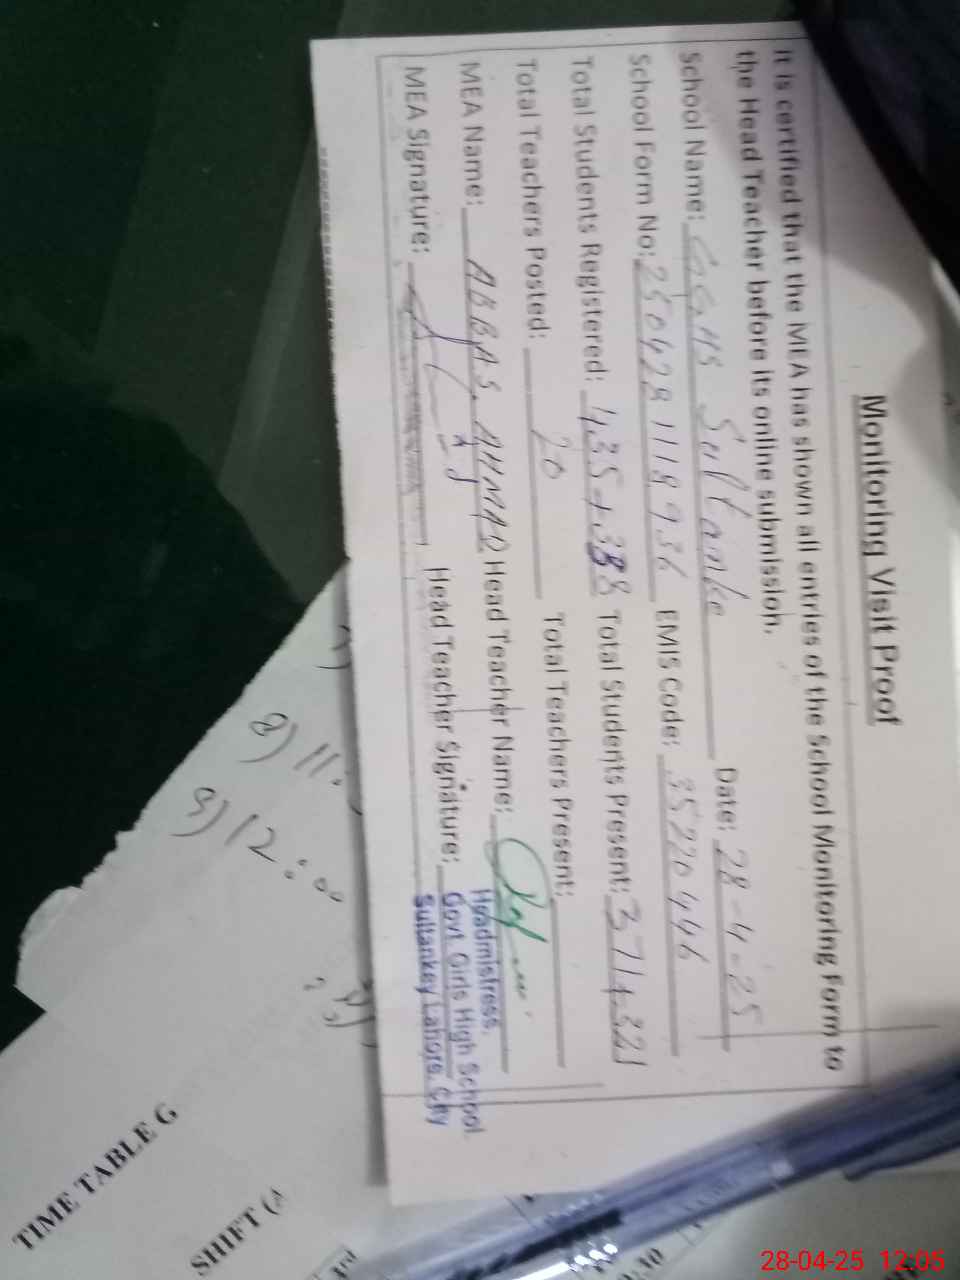 Monitoring Visit Proof
It is certified that the MEA has shown all entries of the School Monitoring Form to
the Head Teacher before its online submission.
School Name: GGHS Sultanke Date: 28-4-25
School Form No: 2504281118936 EMIS Code: 35220446
Total Students Registered: 435+388 Total Students Present: 371+321
Total Teachers Posted: 20 Total Teachers Present:
MEA Name: ABBAS AHMAD Head Teacher Name:
MEA Signature: Head Teacher Signature:
Headmistress,
Govt. Girls High School
Sultankey Lahore. City
2) 11:
3) 12:00
TIME TABLE G
SHIFT (
28-04-25 12:05